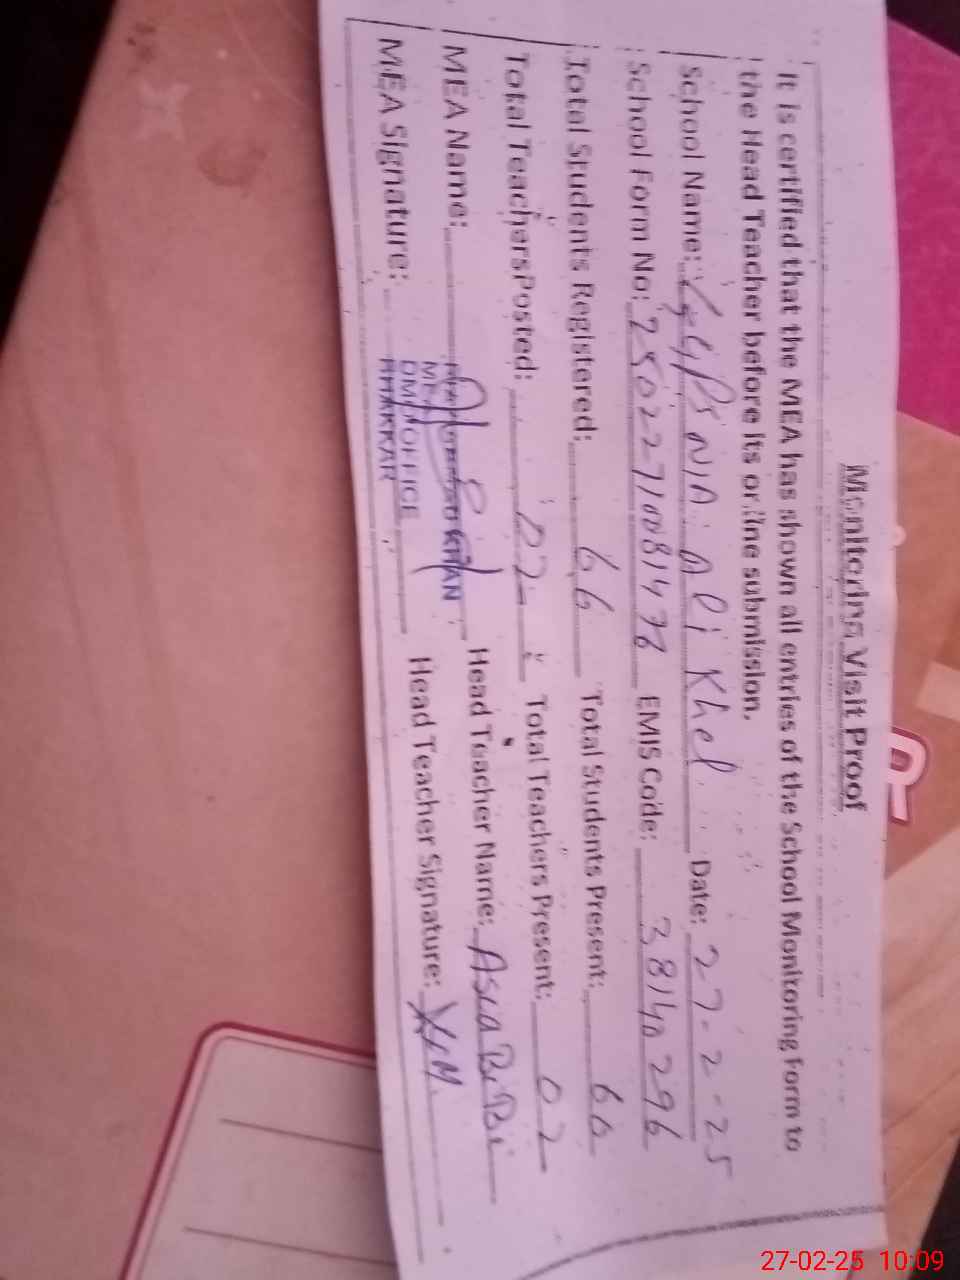 Monitoring Visit Proof
It is certified that the MEA has shown all entries of the School Monitoring Form to
the Head Teacher before its online submission.
School Name: GGPS Nia Ali Khel Date: 27-2-25
School Form No: EMIS Code: 38140296
Total Students Registered: 66 Total Students Present: 60
Total Teachers Posted: 02 Total Teachers Present: 02
MEA Name: KHAN Head Teacher Name: Asia BiBi
MEA Signature: Head Teacher Signature:
MEA
DMO OFFICE
BHAKKAR
R
27-02-25 10:09